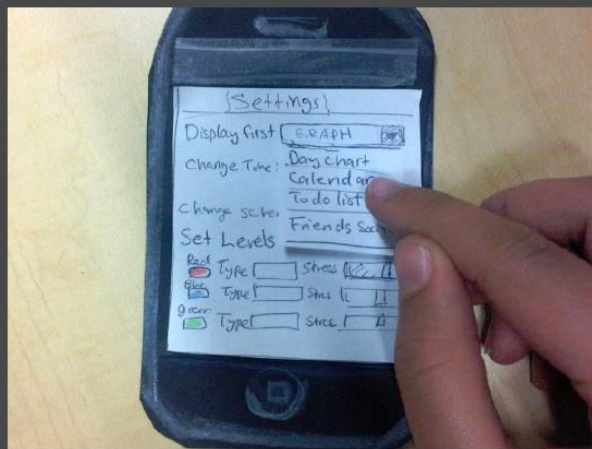 Settings
Display first GRAPH
Change Time:
Day chart
Calendar
To do list
Change
Friends
Set Levels
Red Type Stress
Blue Type Stress
green Type Stres